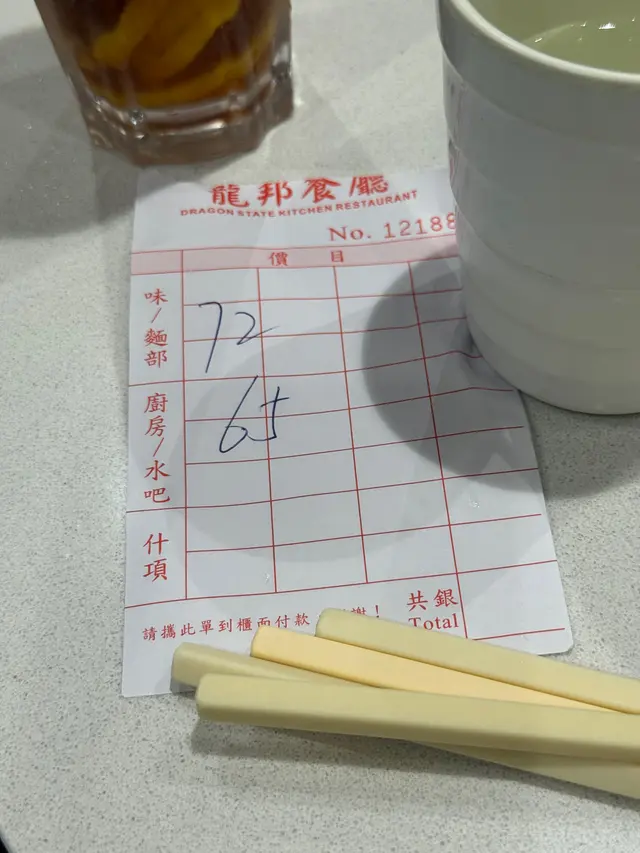 龍邦餐廳
DRAGON STATE KITCHEN RESTAURANT
No. 12188
價目
味/麵部
72
廚房/水吧
65
什項
請攜此單到櫃面付款 謝!
共銀
Total